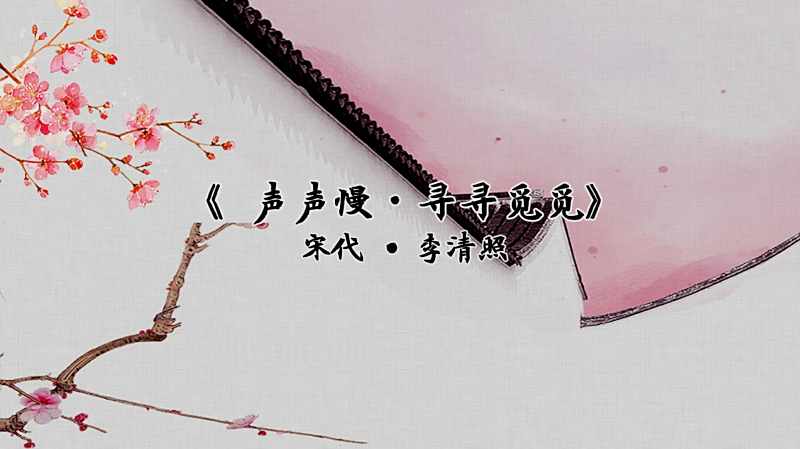 《 声声慢·寻寻觅觅》
宋代 • 李清照